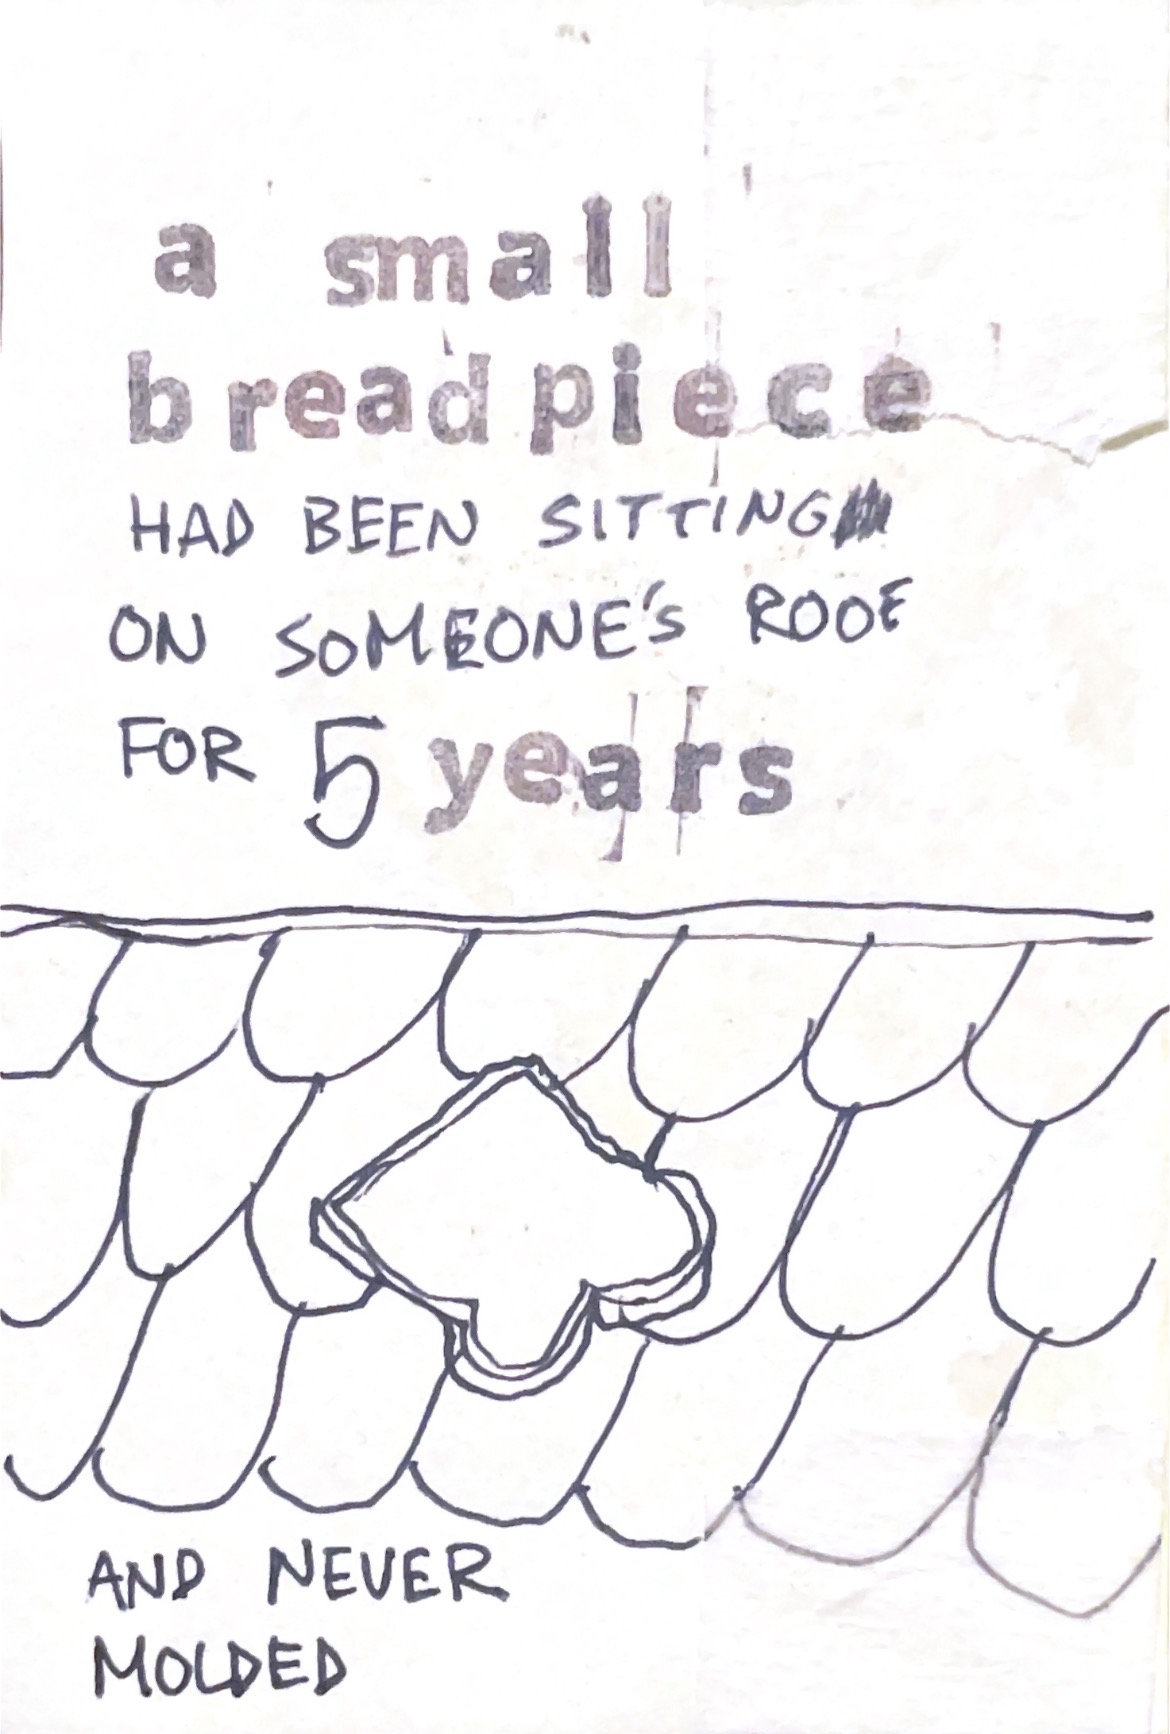 a small
bread piece
HAD BEEN SITTING
ON SOMEONE'S ROOF
FOR 5 years
AND NEVER
MOLDED